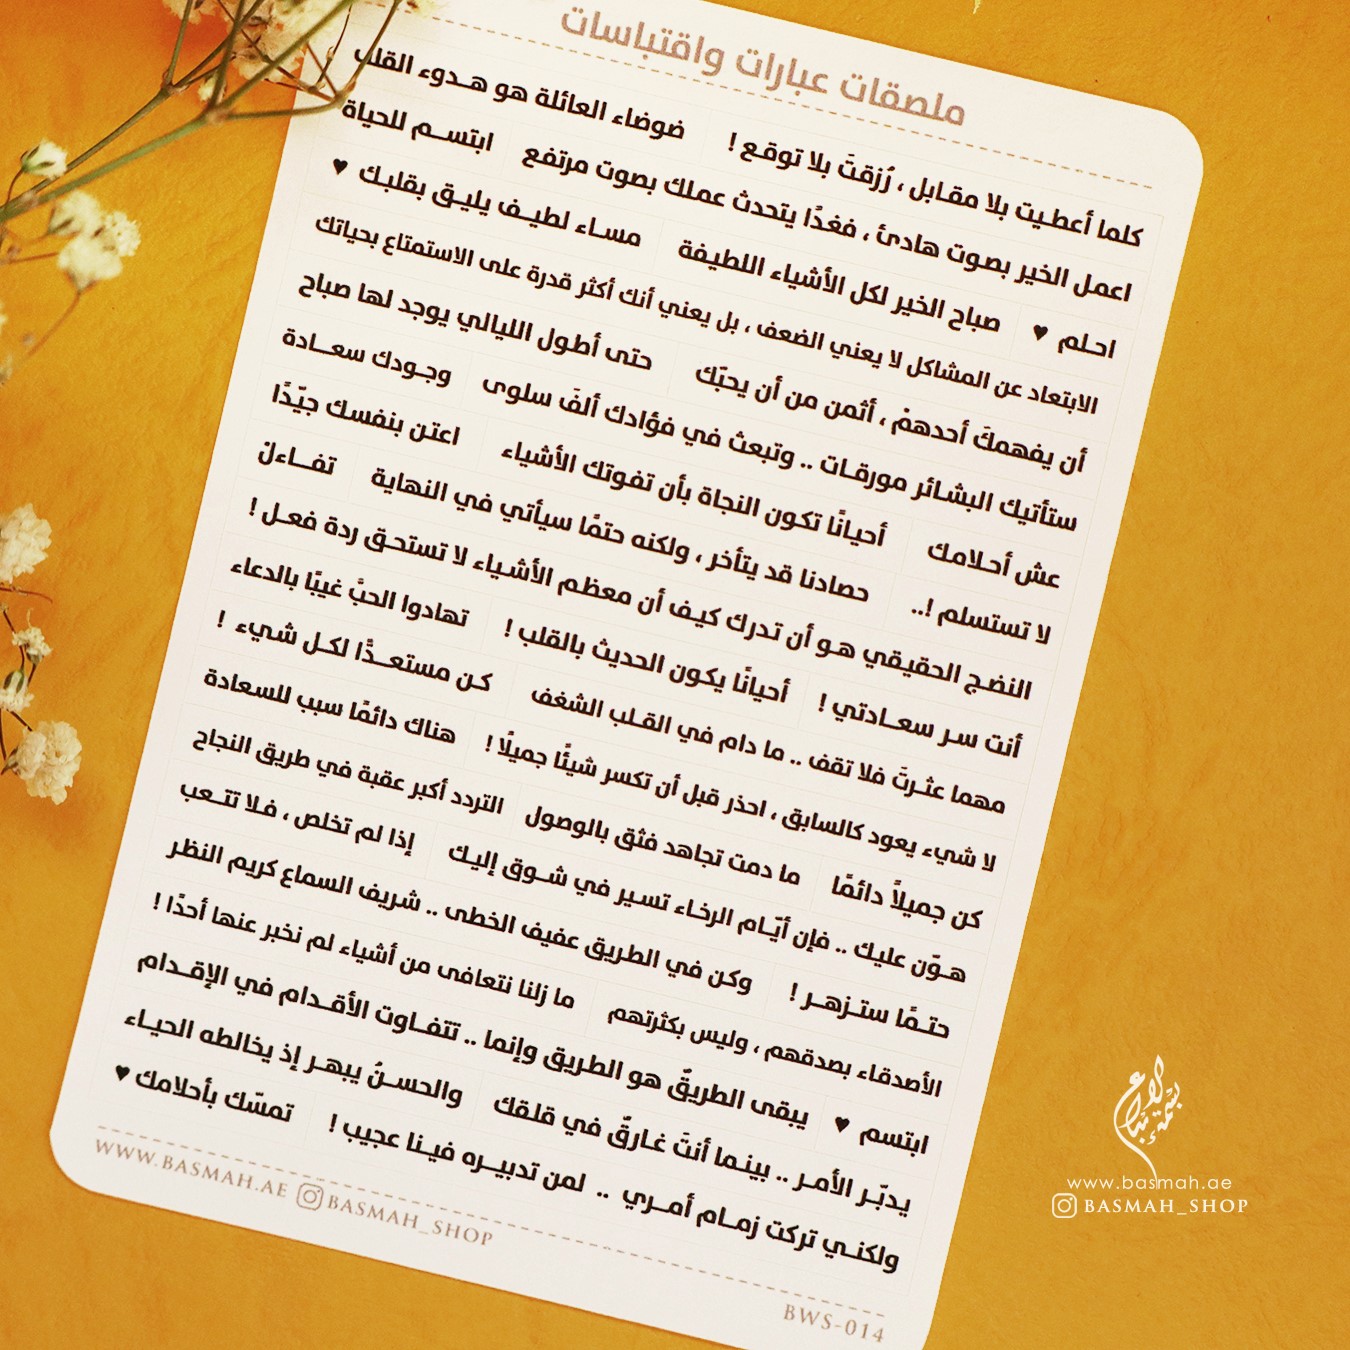 ملصقات عبارات واقتباسات
كلما أعطيت بلا مقابل ، رُزقتَ بلا توقع ! ضوضاء العائلة هو هدوء القلب
اعمل الخير بصوت هادئ ، فغدًا يتحدث عملك بصوت مرتفع ابتسم للحياة
احلم ♥ صباح الخير لكل الأشياء اللطيفة مساء لطيف يليق بقلبك ♥
الابتعاد عن المشاكل لا يعني الضعف ، بل يعني أنك أكثر قدرة على الاستمتاع بحياتك
أن يفهمكَ أحدهمْ ، أثمن من أن يحبّك حتى أطول الليالي يوجد لها صباح
ستأتيك البشائر مورقات .. وتبعث في فؤادك ألفَ سلوى وجودك سعادة
عش أحلامك أحيانًا تكون النجاة بأن تفوتك الأشياء اعتن بنفسك جيّدًا
لا تستسلم !.. حصادنا قد يتأخر ، ولكنه حتمًا سيأتي في النهاية تفاءلْ
النضج الحقيقي هو أن تدرك كيف أن معظم الأشياء لا تستحق ردة فعل !
أنت سر سعادتي ! أحيانًا يكون الحديث بالقلب ! تهادوا الحبَّ غيبًا بالدعاء
مهما عثرتَ فلا تقف .. ما دام في القلب الشغف كن مستعدًّا لكل شيء !
لا شيء يعود كالسابق ، احذر قبل أن تكسر شيئًا جميلًا ! هناك دائمًا سبب للسعادة
كن جميلاً دائمًا ما دمت تجاهد فثق بالوصول التردد أكبر عقبة في طريق النجاح
هوّن عليك .. فإن أيّام الرخاء تسير في شوق إليك إذا لم تخلص ، فلا تتعب
حتمًا ستزهر ! وكن في الطريق عفيف الخطى .. شريف السماع كريم النظر
الأصدقاء بصدقهم ، وليس بكثرتهم ما زلنا نتعافى من أشياء لم نخبر عنها أحدًا !
ابتسم ♥ يبقى الطريقُ هو الطريق وإنما .. تتفاوت الأقدام في الإقدام
يدبّر الأمر .. بينما أنتَ غارقٌ في قلقك والحسنُ يبهر إذ يخالطه الحياء
ولكني تركت زمام أمري .. لمن تدبيره فينا عجيب ! تمسّك بأحلامك ♥
WWW.BASMAH.AE BASMAH_SHOP
BWS-014
بسمة الإبداع
www.basmah.ae
BASMAH_SHOP